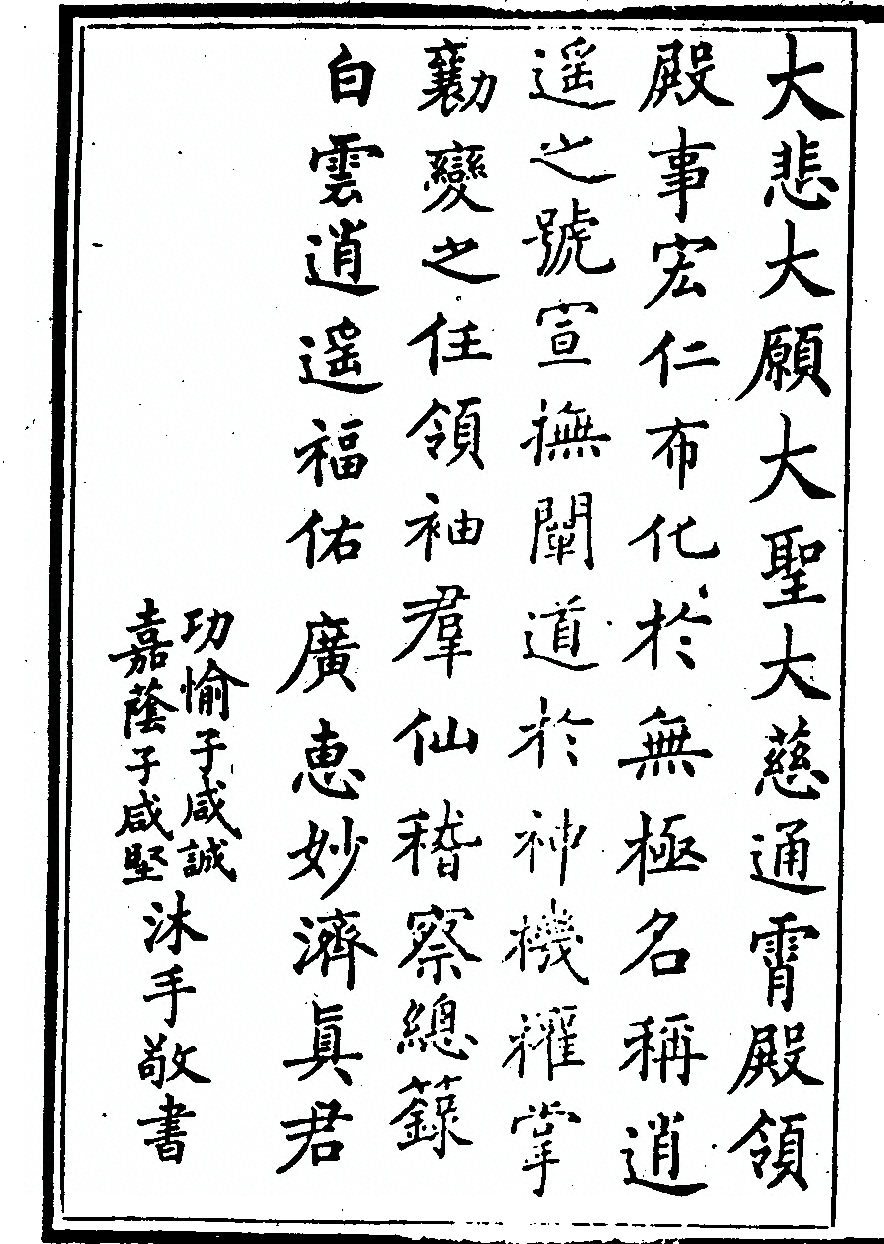 大悲大願大聖大慈通霄殿領
殿事宏仁布化於無極名稱逍
遥之號宣撫闡道於神機權掌
勷變之任領袖羣仙稽察總籙
白雲逍遥福佑廣惠妙濟眞君
功愉子咸誠
嘉蔭子咸堅
沐手敬書